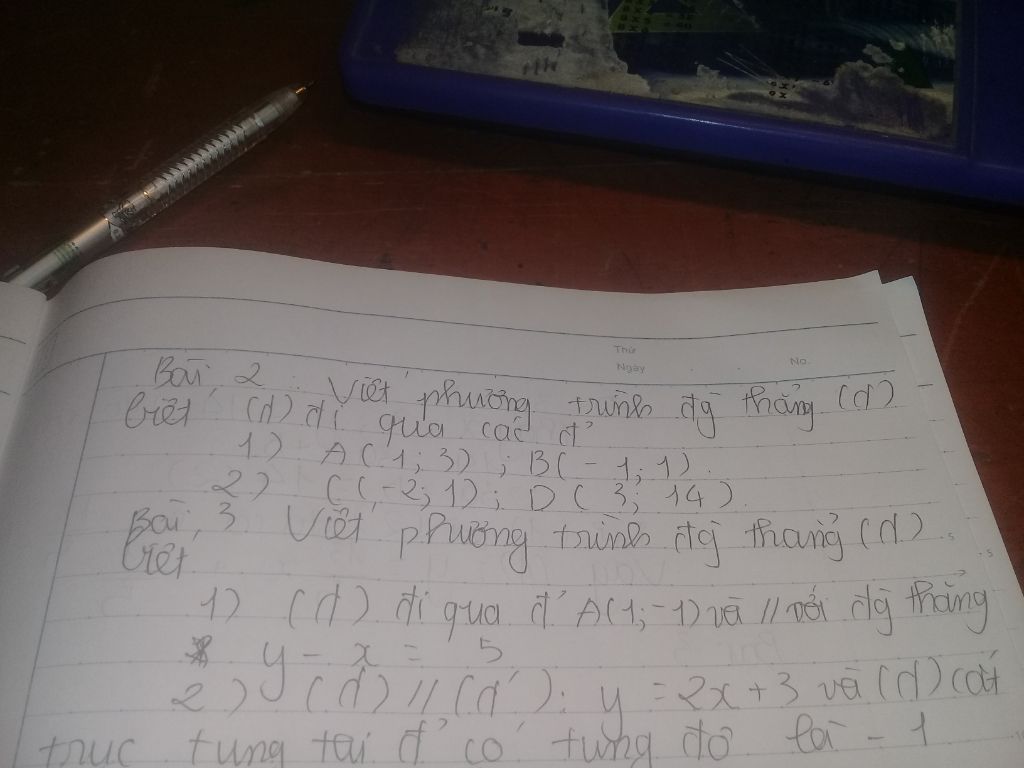 Thứ
Ngày No.
Bài 2: Viết phương trình đg thẳng (d)
biết (d) đi qua các đ'
1) A(1; 3) ; B(-1; 1).
2) C(-2; 1) ; D(3; 14)
Bài 3 Viết phương trình đg thẳng (d)
biết
1) (d) đi qua đ' A(1; -1) và // với đg thẳng
y - x = 5
2) (d) // (d'): y = 2x + 3 và (d) cắt
trục tung tại đ' có tung độ là -1